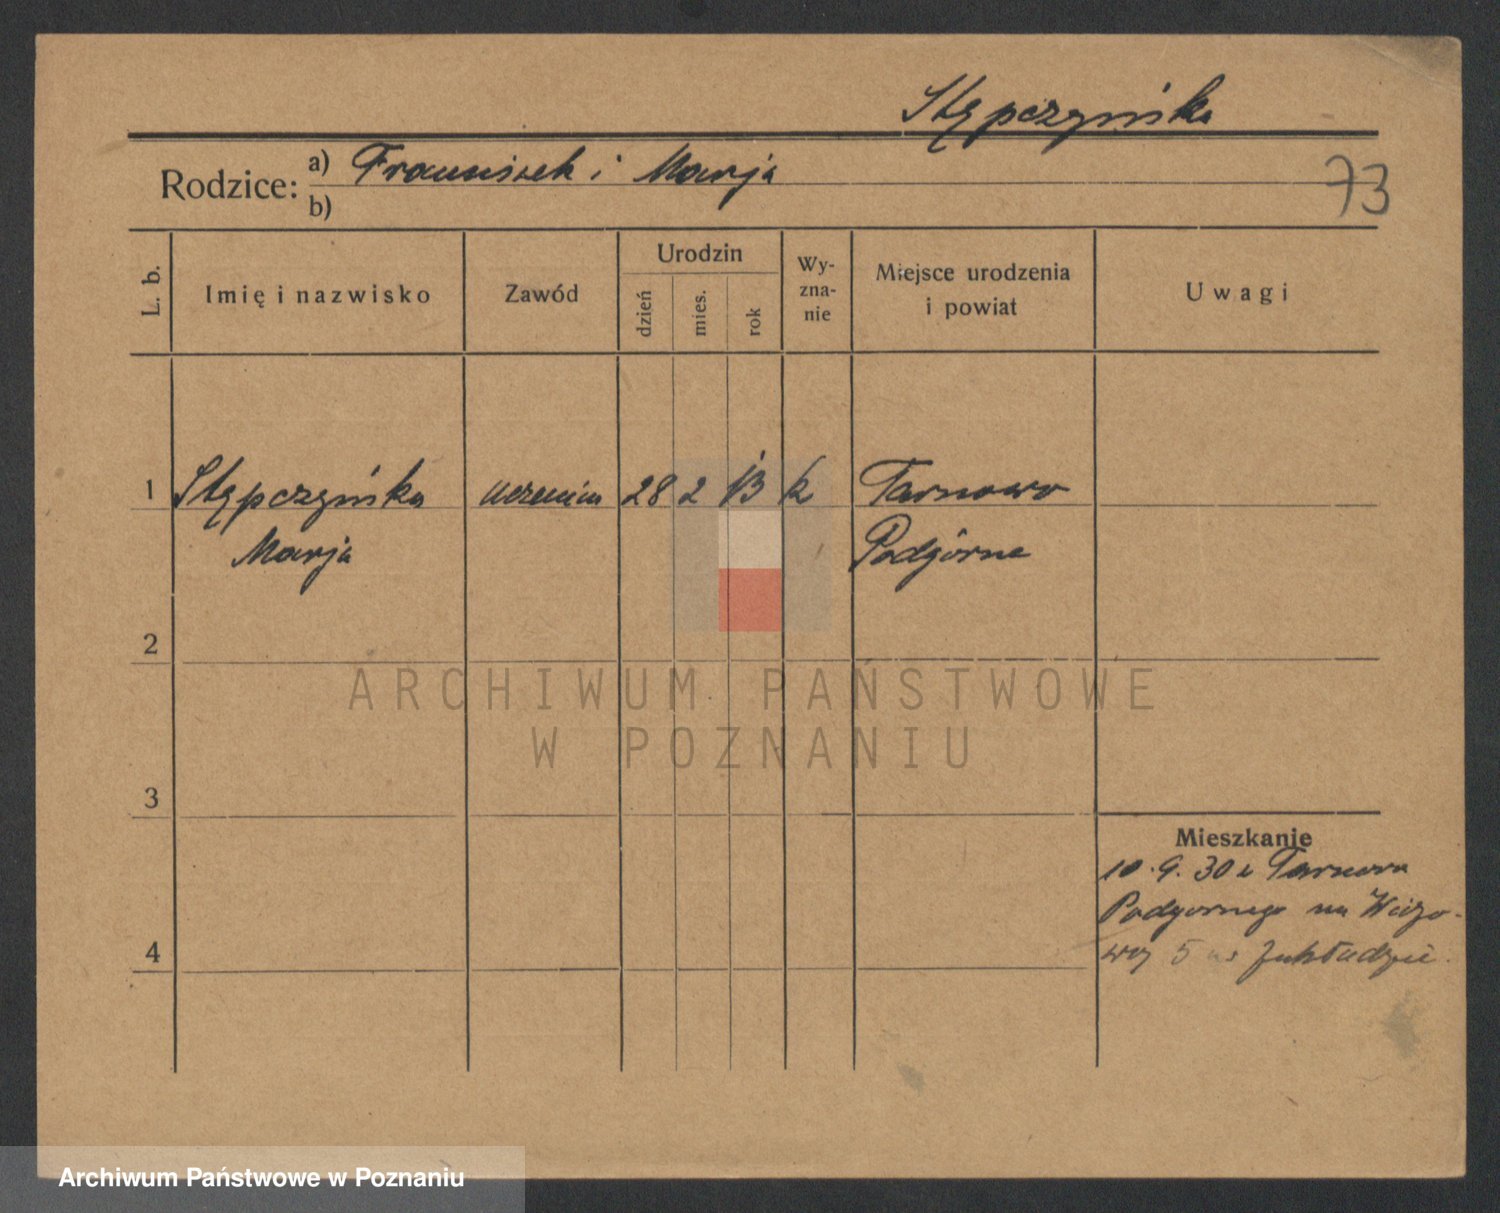 Stępczyńska
Rodzice: a) Franciszek i Marja
b)
73
L. b.
Imię i nazwisko
Zawód
Urodzin
dzień
mies.
rok
Wy-
zna-
nie
Miejsce urodzenia
i powiat
Uwagi
1 Stępczyńska uczenica 28 2 13 k Tarnowo
Marja Podgórne
2
3
4
Mieszkanie
10.9.30 z Tarnowa
Podgornego na
5 Zakładzie.
ARCHIWUM PAŃSTWOWE
W POZNANIU
Archiwum Państwowe w Poznaniu